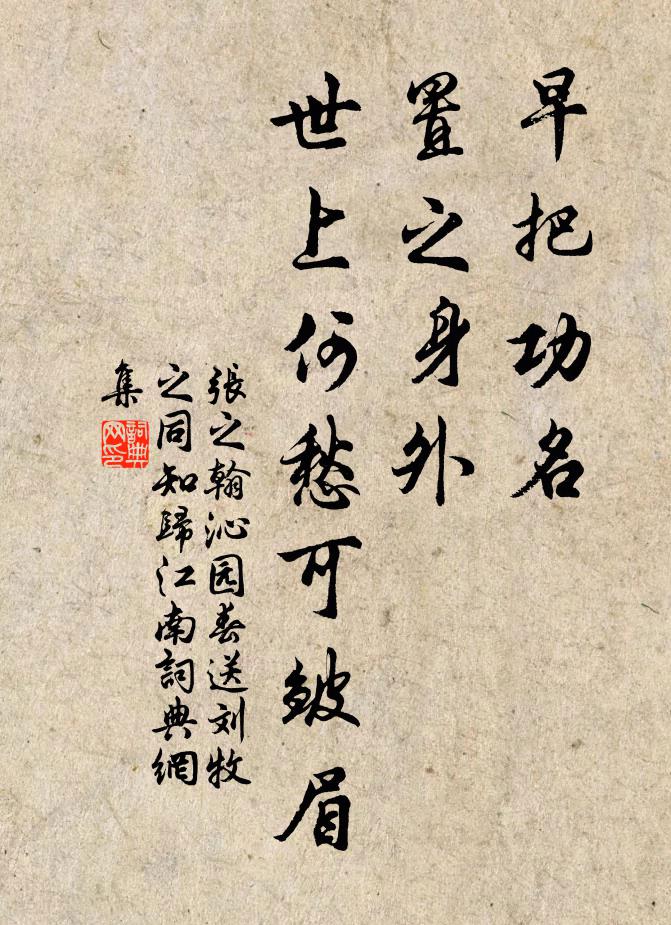 早把功名
置之身外
世上何愁可皴眉
張之翰沁园春送刘牧
之同知歸江南詞典網
集
詞典
网印